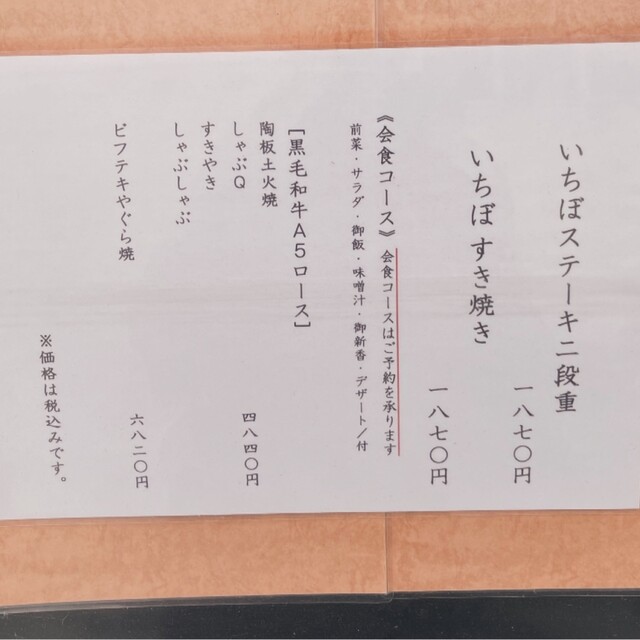 いちぼステーキ二段重
一八七〇円
いちぼすき焼き
一八七〇円
《会食コース》会食コースはご予約を承ります
前菜・サラダ・御飯・味噌汁・御新香・デザート/付
［黒毛和牛A5ロース］
陶板土火焼
しゃぶQ
四八四〇円
すきやき
しゃぶしゃぶ
ビフテキやぐら焼
六八二〇円
※価格は税込みです。